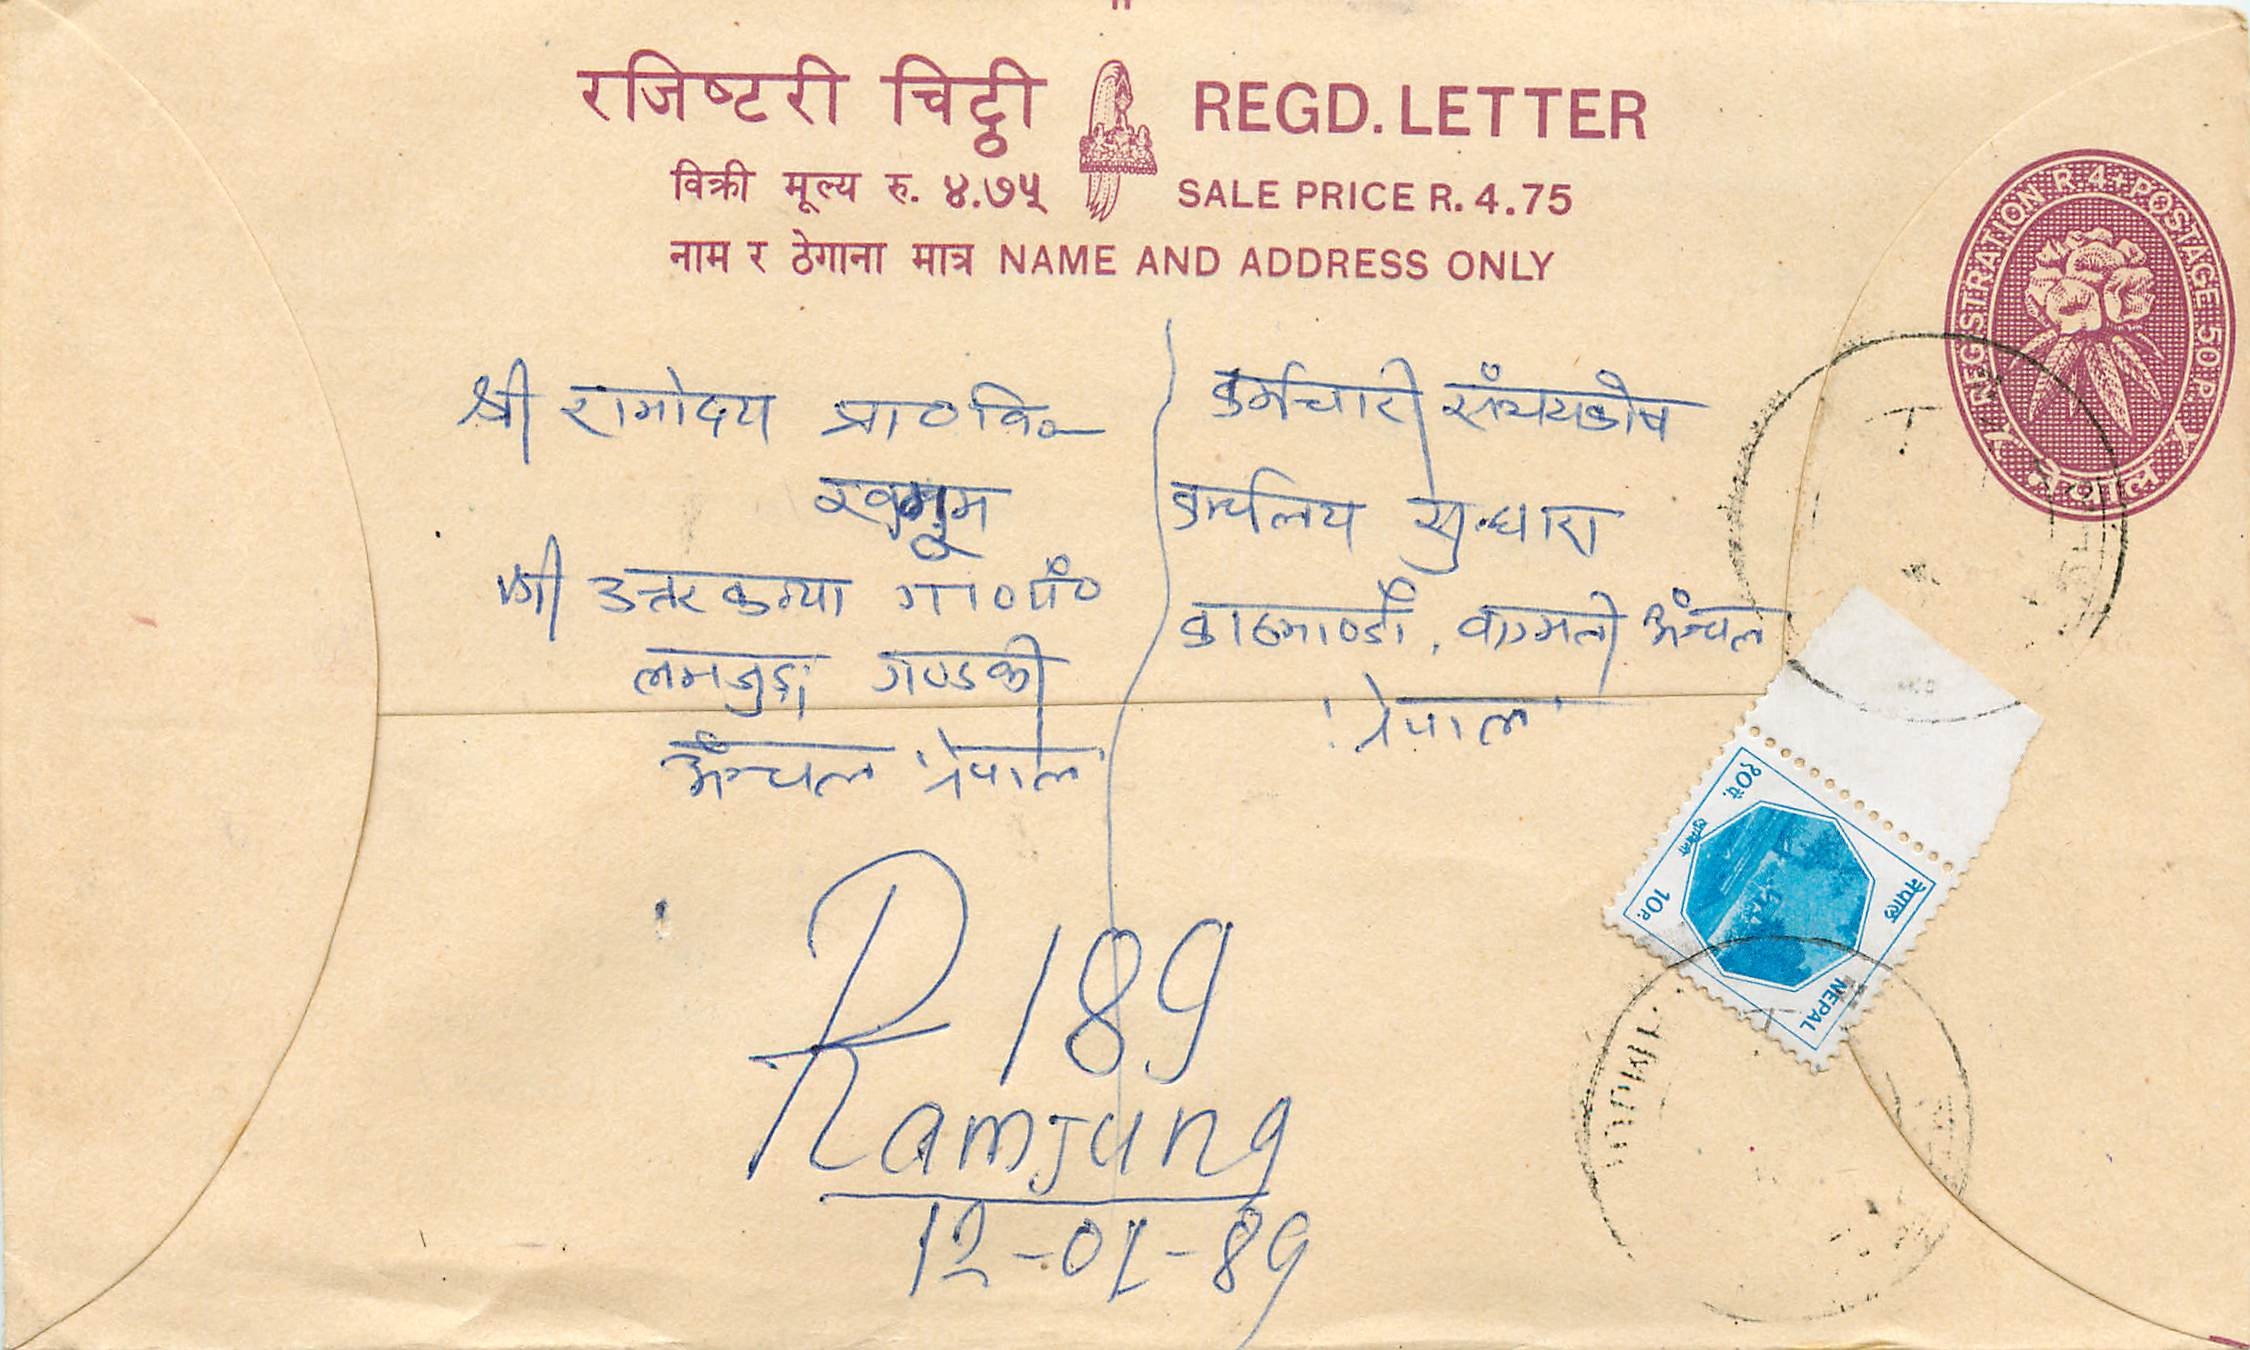 रजिष्टरी चिट्ठी REGD. LETTER
विक्री मूल्य रु. ४.७५ SALE PRICE R. 4.75
नाम र ठेगाना मात्र NAME AND ADDRESS ONLY
REGISTRATION R.4+POSTAGE 50 P.
नेपाल
श्री रामोदय प्रा०वि०
श्री उत्तरकन्या गा०पं०
लमजुङ्ग गण्डकी
अँन्चल नेपाल
कर्मचारी संचयकोष
कार्यलय सुन्धारा
काठमाण्डौं, वाग्मती अँन्चल
नेपाल
१०पै.
10P.
नेपाल
NEPAL
R 189
Ramjung
12-01-89